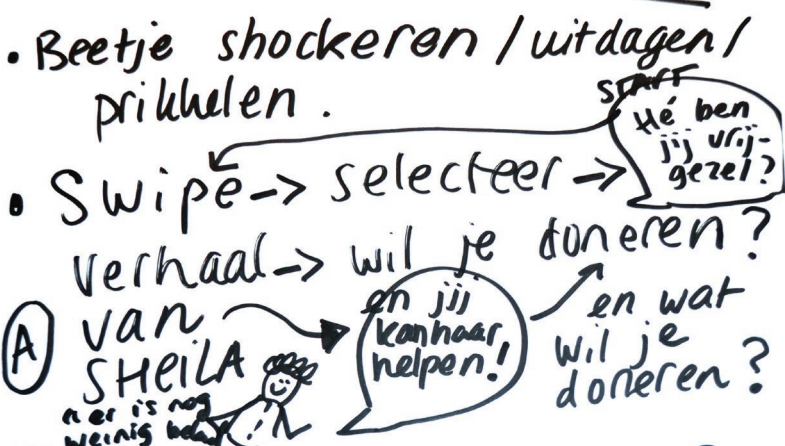 • Beetje shockeren / uitdagen /
prikkelen.
START
Hé ben
jij vrij-
gezel?
• Swipe -> selecteer ->
verhaal -> wil je doneren?
A
van
SHEILA
en jij
kan haar
helpen!
en wat
wil je
doneren?
er is nog
weinig